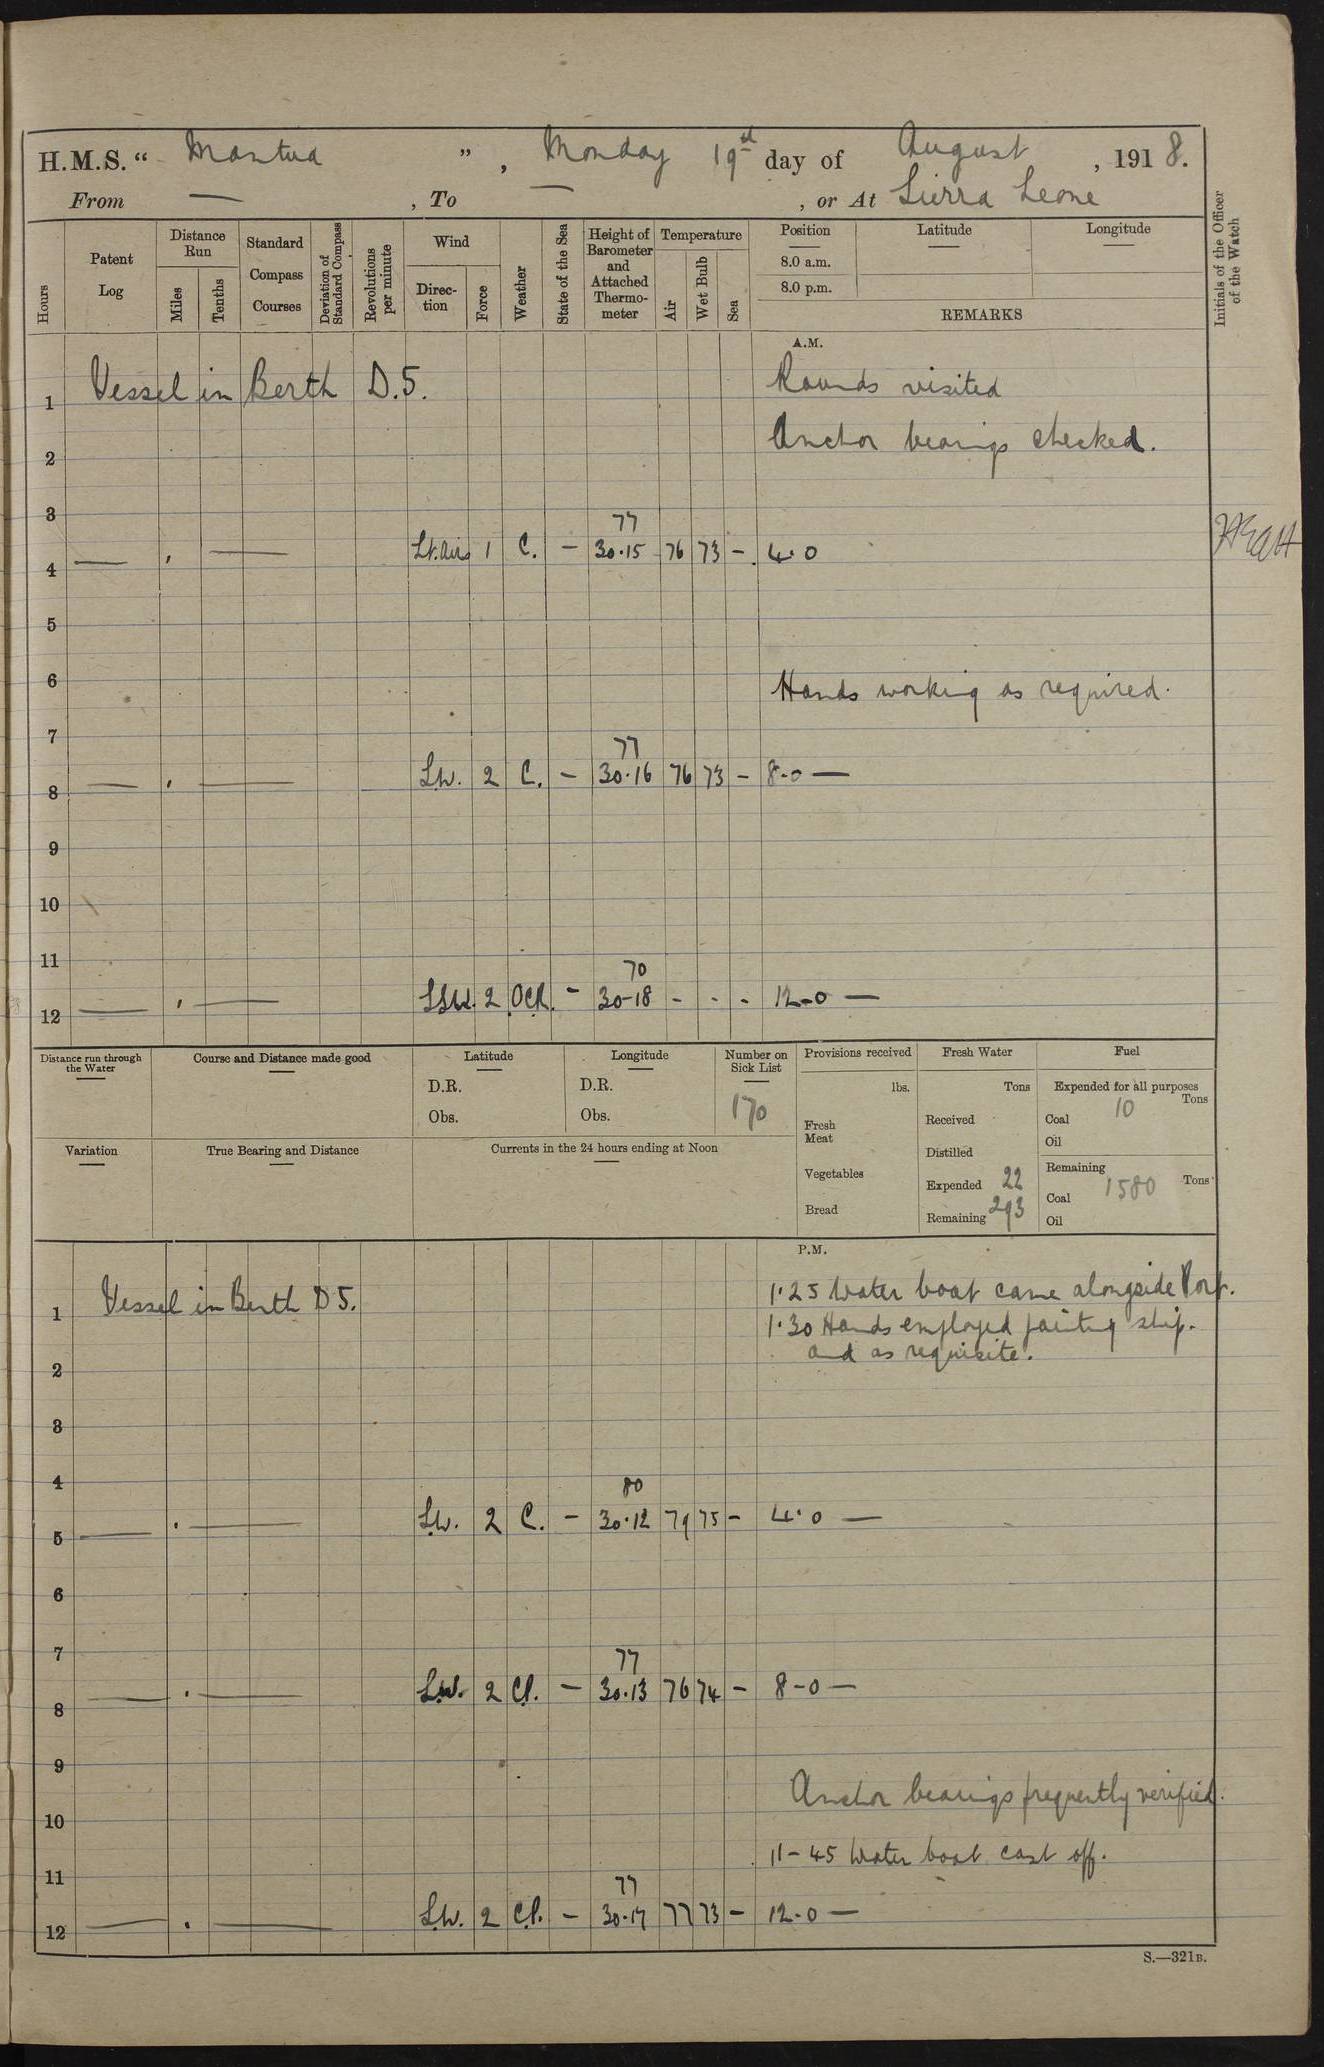 H.M.S. “ Mantua ” , Monday 19th day of August , 1918.
From — , To — , or At Sierra Leone
Hours
Patent Log
Distance Run
Miles
Tenths
Standard Compass Courses
Deviation of Standard Compass
Revolutions per minute
Wind
Direction
Force
Weather
State of the Sea
Height of Barometer and Attached Thermometer
Temperature
Air
Wet Bulb
Sea
Position
8.0 a.m.
8.0 p.m.
Latitude
Longitude
REMARKS
Initials of the Officer of the Watch
A.M.
1 Vessel in Berth D.5. Rounds visited
2 Anchor bearings checked.
3 77
4 — . — Lt. airs 1 C. — 30.15 76 73 — 4.0
5
6 Hands working as required.
7 77
8 — . — S.W. 2 C. — 30.16 76 73 — 8-0 —
9
10
11 70
12 — . — SSW. 2 OCR. - 30-18 - - - 12-0 —
Distance run through the Water
Course and Distance made good
Latitude
D.R.
Obs.
Longitude
D.R.
Obs.
Number on Sick List
170
Provisions received
lbs.
Fresh Meat
Vegetables
Bread
Fresh Water
Tons
Received
Distilled
Expended 22
Remaining 293
Fuel
Expended for all purposes
Tons
Coal 10
Oil
Remaining
Tons
Coal 1580
Oil
Variation
True Bearing and Distance
Currents in the 24 hours ending at Noon
P.M.
1 Vessel in Berth D5. 1.25 Water boat came alongside Port.
1.30 Hands employed painting ship.
2 and as requisite.
3
4 80
5 — . — S.W. 2 C. — 30.12 79 75 — 4.0 —
6
7 77
8 — . — S.W. 2 C.P. — 30.13 76 74 — 8-0 —
9
10 Anchor bearings frequently verified.
11-45 Water boat cast off.
11 77
12 — . — S.W. 2 C.P. — 30.17 77 73 — 12-0 —
S.—321B.